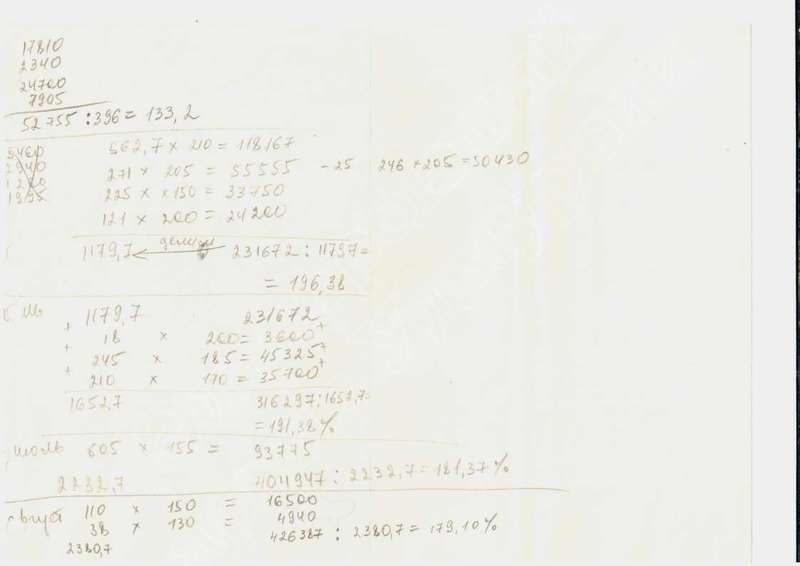 17810
2340
24700
7905
52755 : 396 = 133,2
562,7 × 210 = 118167
271 × 205 = 55555 - 25 246 × 205 = 50430
225 × ×150 = 33750
121 × 200 = 24200
1179,7 делим 231672 : 1179,7 =
= 196,38
1179,7 231672
+ 18 × 200 = 3600 +
+ 245 × 185 = 45325 +
+ 210 × 170 = 35700 +
1652,7 316297 : 1652,7 =
= 191,38 %
июль 605 × 155 = 93775
2232,7 404947 : 2232,7 = 181,37 %
август 110 × 150 = 16500
38 × 130 = 4940
2380,7 426387 : 2380,7 = 179,10 %